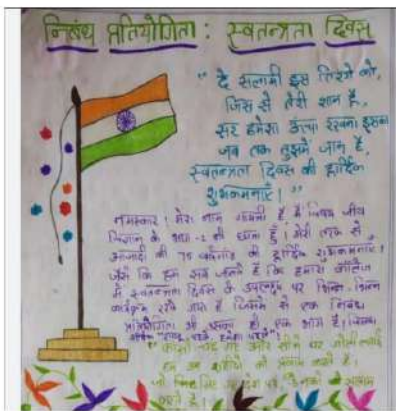 निबंध प्रतियोगिता : स्वतन्त्रता दिवस
" दे सलामी इस तिरंगे को,
जिस से तेरी शान है,
सर हमेशा ऊँचा रखना इसका
जब तक तुझमे जान है,
स्वतन्त्रता दिवस की हार्दिक
शुभकामनाएँ ! "
नमस्कार ! मेरा नाम है मैं जीव
विज्ञान के भाग -2 की छात्रा हूँ ! मेरी तरफ से
आजादी की 75 की हार्दिक शुभकामनाएँ !
जैसे कि हम सब जानते हैं कि हमारा कॉलेज
में स्वतन्त्रता दिवस के उपलक्ष्य पर भिन्न - भिन्न
कार्यक्रम रखे जाते हैं जिसमें से एक निबंध
प्रतियोगिता भी उसका ही एक भाग है।
और सीने पर
हम उन शहीदों को प्रणाम करते हैं।